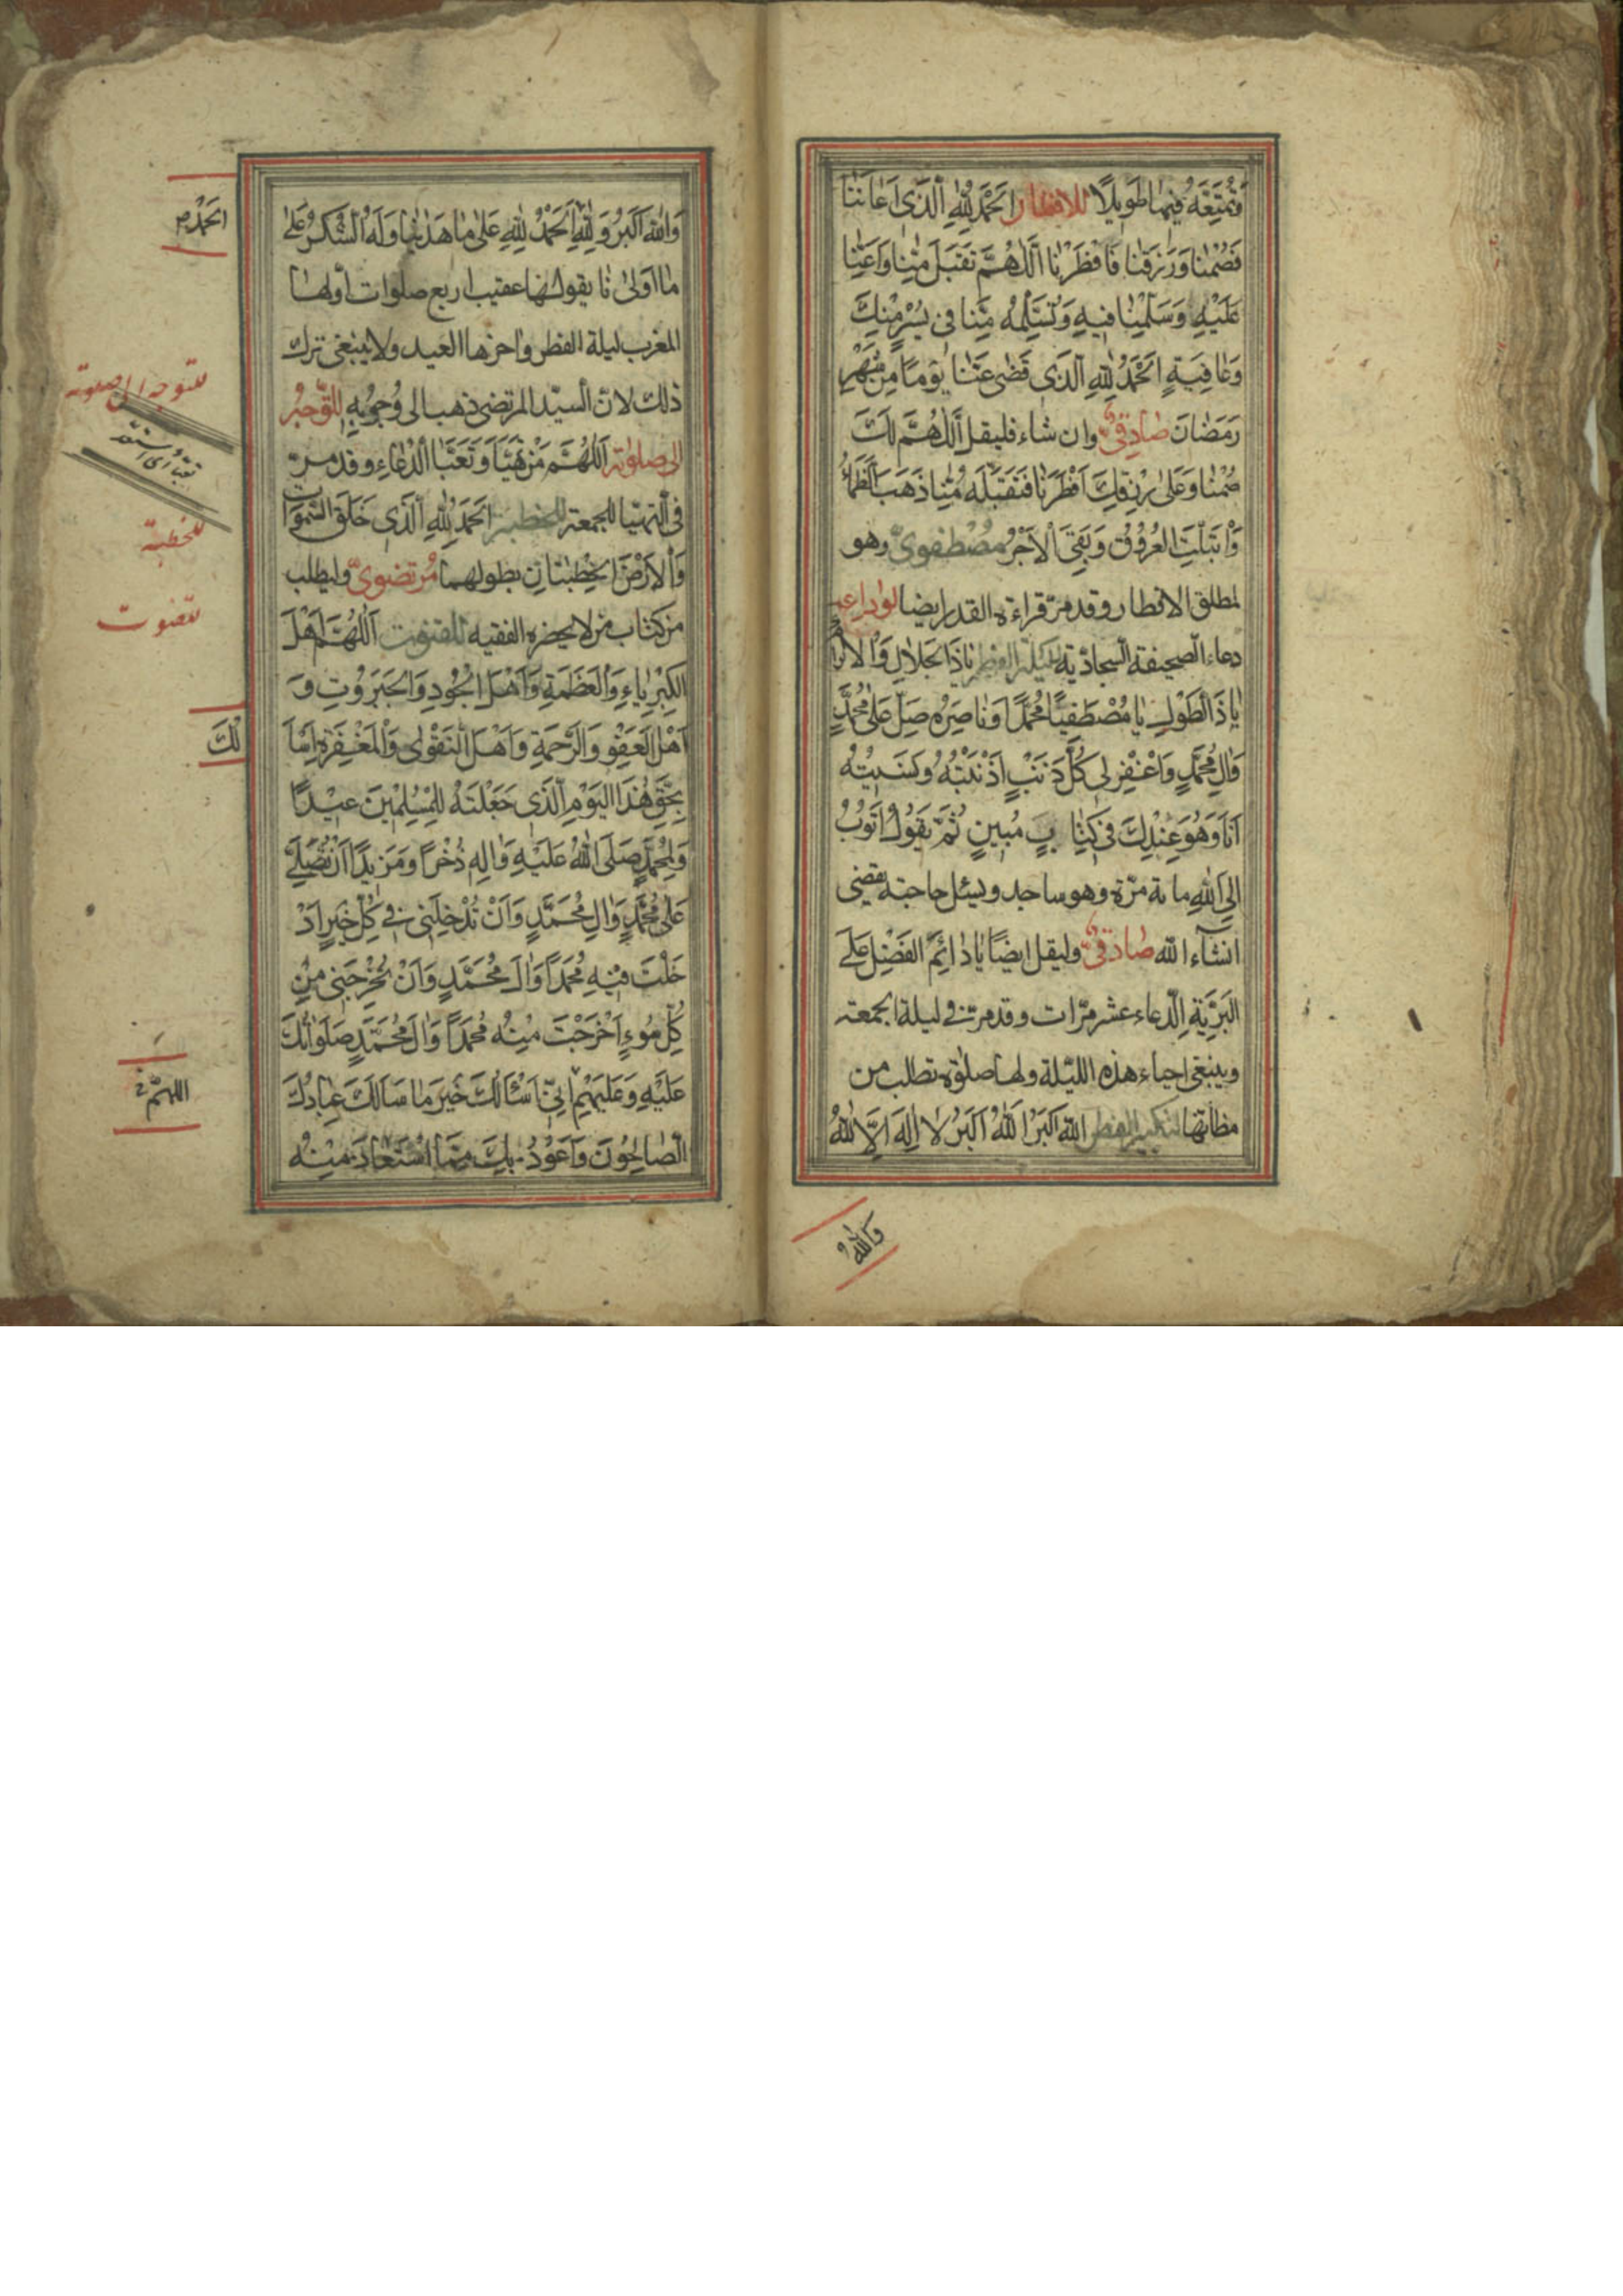 وَتُمَتِّعَهُ فِيهَا طَوِيلًا للافطار اَلْحَمْدُ لِلّٰهِ الَّذِي اَعَانَنَا
فَصُمْنَا وَرَزَقَنَا فَاَفْطَرْنَا اَللّٰهُمَّ تَقَبَّلْ مِنَّا وَاَعِنَّا
عَلَيْهِ وَسَلِّمْنَا فِيهِ وَتَسَلَّمْهُ مِنَّا فِي يُسْرٍ مِنْكَ
وَعَافِيَةٍ اَلْحَمْدُ لِلّٰهِ الَّذِي قَضَى عَنَّا يَوْمًا مِنْ شَهْرِ
رَمَضَانَ صادقيّ وان شاء فليقل اَللّٰهُمَّ لَكَ
صُمْنَا وَعَلَى رِزْقِكَ اَفْطَرْنَا فَتَقَبَّلْهُ مِنَّا ذَهَبَ الظَّمَأُ
وَابْتَلَّتِ الْعُرُوقُ وَبَقِيَ الْاَجْرُ مصطفويّ وهو
لمطلق الافطار وقد مرّ قراءة القدر ايضا لوداعه
دعاء الصحيفة السجاديّة لليلة الفطر يَا ذَا الْجَلَالِ وَالْاِكْرَامِ
يَا ذَا الطَّوْلِ يَا مُصْطَفِيًا مُحَمَّدًا وَنَاصِرَهُ صَلِّ عَلَى مُحَمَّدٍ
وَآلِ مُحَمَّدٍ وَاغْفِرْ لِي كُلَّ ذَنْبٍ اَذْنَبْتُهُ وَنَسِيتُهُ
اَنَا وَهُوَ عِنْدَكَ فِي كِتَابٍ مُبِينٍ ثُمَّ يَقُولُ اَتُوبُ
اِلَى اللّٰهِ مائة مرّة وهو ساجد ويسئل حاجته يقضى
انشاء الله صادقيّ وليقل ايضًا يَا دَائِمَ الْفَضْلِ عَلَى
الْبَرِيَّةِ الدعاء عشر مرّات وقد مرّ في ليلة الجمعة
وينبغي احياء هذه الليلة ولها صلوة تطلب من
مظانّها لتكبير الفطر اَللّٰهُ اَكْبَرُ اَللّٰهُ اَكْبَرُ لَا اِلٰهَ اِلَّا اللّٰهُ
وَاللّٰهُ
وَاللّٰهُ اَكْبَرُ وَلِلّٰهِ الْحَمْدُ اَلْحَمْدُ لِلّٰهِ عَلَى مَا هَدَانَا وَلَهُ الشُّكْرُ عَلَى
مَا اَوْلَانَا يقولها عقيب اربع صلوات اولها
المغرب ليلة الفطر واخرها العيد ولا ينبغي ترك
ذلك لانّ السيّد المرتضى ذهب الى وجوبه للتوجه
الى صلوته اَللّٰهُمَّ مَنْ تَهَيَّأَ وَتَعَبَّأَ الدعاء وقد مرّ
في التهيّا للجمعة للخطبة اَلْحَمْدُ لِلّٰهِ الَّذِي خَلَقَ السَّمٰوَاتِ
وَالْاَرْضَ الخطبتان بطولهما مرتضويّ وليطلب
من كتاب من لا يحضره الفقيه للقنوت اَللّٰهُمَّ اَهْلَ
الْكِبْرِيَاءِ وَالْعَظَمَةِ وَاَهْلَ الْجُودِ وَالْجَبَرُوتِ وَ
اَهْلَ الْعَفْوِ وَالرَّحْمَةِ وَاَهْلَ التَّقْوٰى وَالْمَغْفِرَةِ اَسْاَ
لُكَ
بِحَقِّ هٰذَا الْيَوْمِ الَّذِي جَعَلْتَهُ لِلْمُسْلِمِينَ عِيدًا
وَلِمُحَمَّدٍ صَلَّى اللّٰهُ عَلَيْهِ وَآلِهِ ذُخْرًا وَمَزِيدًا اَنْ تُصَلِّيَ
عَلَى مُحَمَّدٍ وَآلِ مُحَمَّدٍ وَاَنْ تُدْخِلَنِي فِي كُلِّ خَيْرٍ اَدْ
خَلْتَ فِيهِ مُحَمَّدًا وَآلَ مُحَمَّدٍ وَاَنْ تُخْرِجَنِي مِنْ
كُلِّ سُوءٍ اَخْرَجْتَ مِنْهُ مُحَمَّدًا وَآلَ مُحَمَّدٍ صَلَوَاتُكَ
عَلَيْهِ وَعَلَيْهِمْ اِنِّي اَسْاَلُكَ خَيْرَ مَا سَاَلَكَ عِبَادُكَ
الصَّالِحُونَ وَاَعُوذُ بِكَ مِمَّا اسْتَعَاذَ مِنْهُ
الحمد
للتوجه الى صلوته
للخطبة
للقنوت
اللهمّ